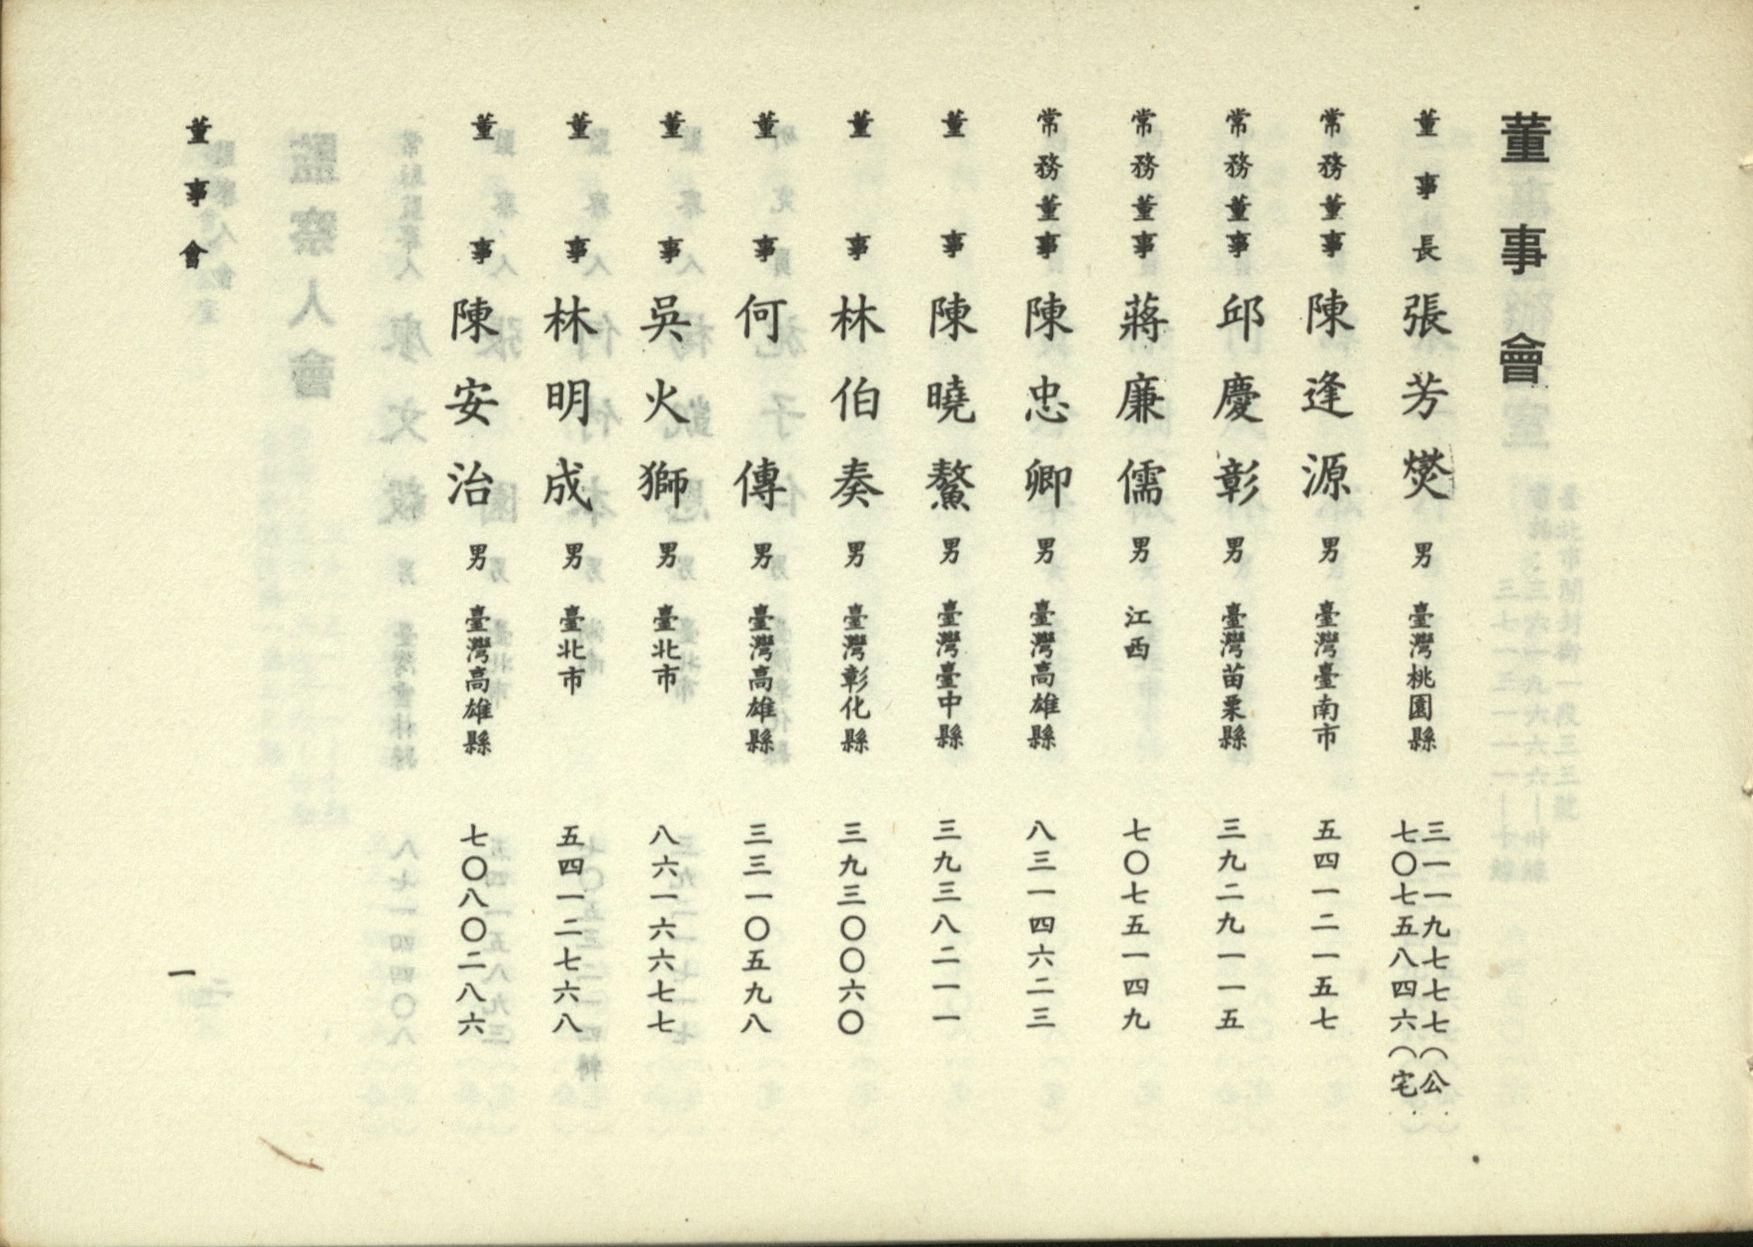 董事會
董事長 張芳燮 男 臺灣桃園縣 三一一九七七七（公
七〇七五八四六（宅
常務董事 陳逢源 男 臺灣臺南市 五四一二一五七
常務董事 邱慶彰 男 臺灣苗栗縣 三九二九一一五
常務董事 蔣廉儒 男 江西 七〇七五一四九
常務董事 陳忠卿 男 臺灣高雄縣 八三一四六二三
董事 陳曉鰲 男 臺灣臺中縣 三九三八二一一
董事 林伯奏 男 臺灣彰化縣 三九三〇〇六〇
董事 何傳 男 臺灣高雄縣 三三一〇五九八
董事 吳火獅 男 臺北市 八六一六六七七
董事 林明成 男 臺北市 五四一二七六八
董事 陳安治 男 臺灣高雄縣 七〇八〇二八六
董事會
一